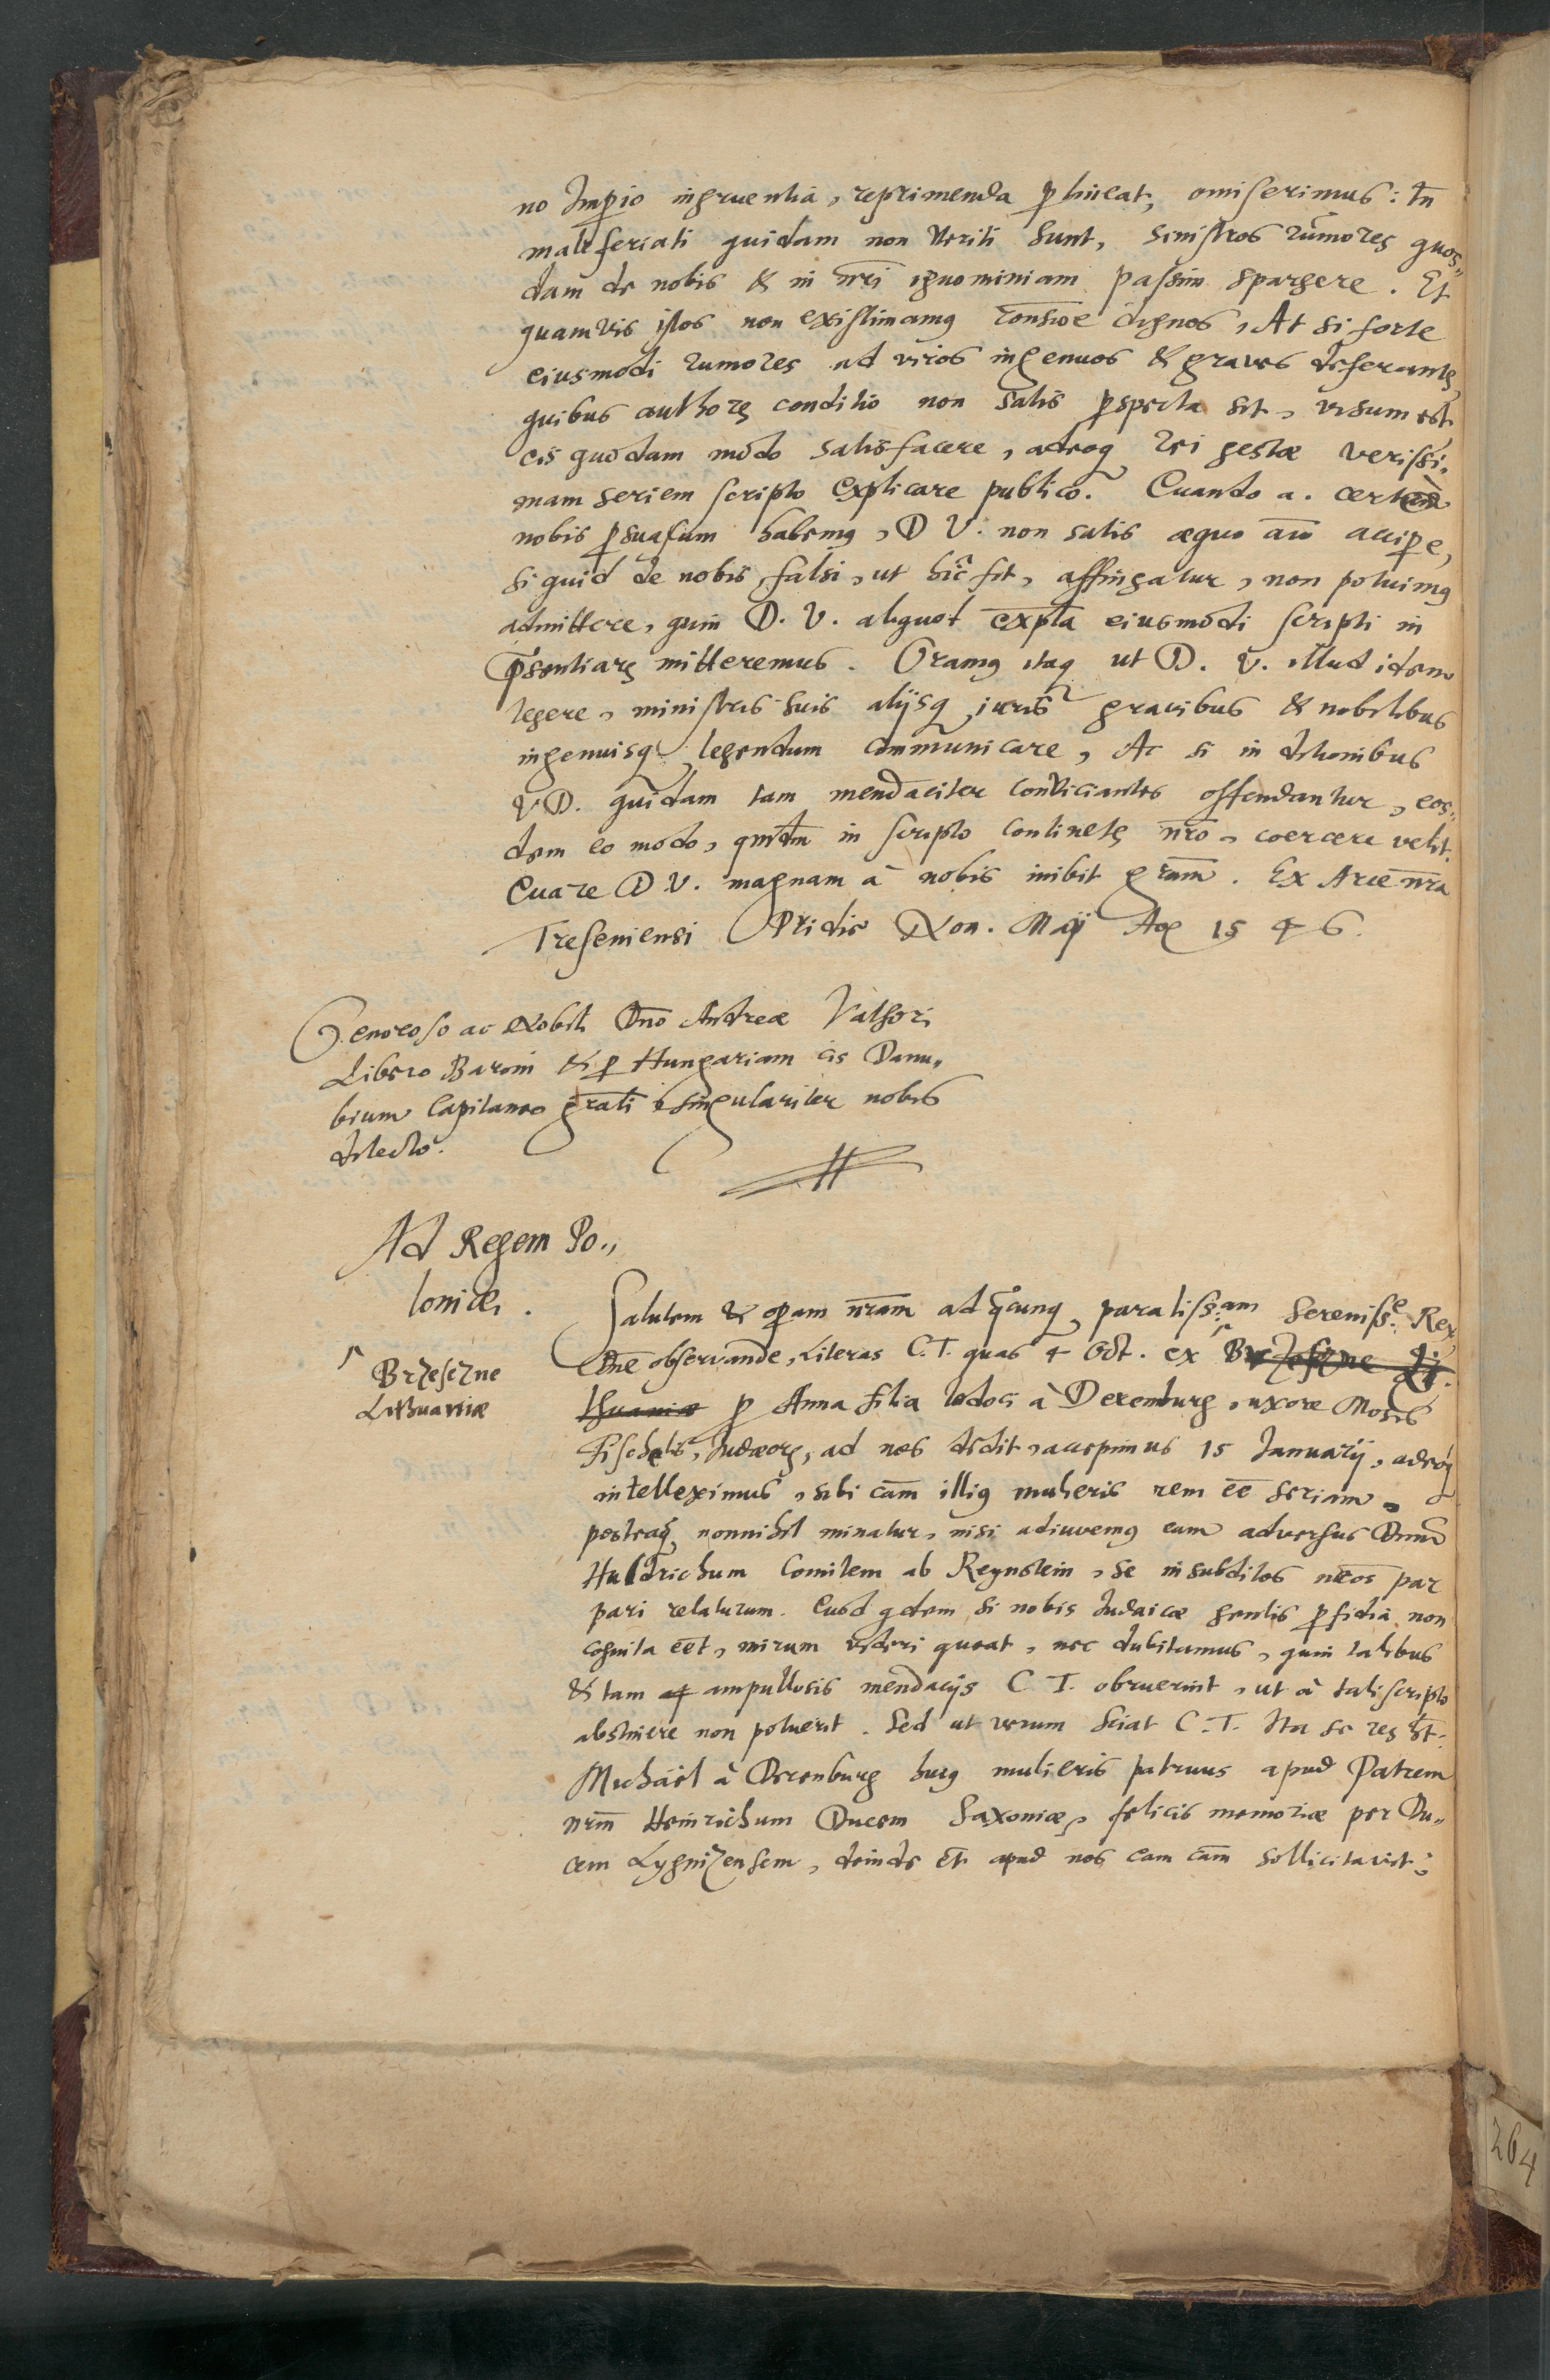 no Imp̱io ingruentia, reprimenda ꝑtineat, omiserimus: tñ
malè feriati quidam non veriti sunt, sinistros rumores quos„
dam de nobis & in nr̃i ignominiam passim spargere. Et
quamvis istos non existimamꝰ dignos, At si forte
eiusmodi rumores ad viros ingenuos & graves deferantꝛ
quibus authoꝝ conditio non satis ꝑspecta sit, visum est
eis quodam modo satisfacere, adeoqꝫ rei gestæ verissi„
mam seriem scripto explicare publico. Cuando a.
nobis ꝑsuasum habemꝰ, D V. non satis æquo aĩo acciꝑe,
si quid de nobis falsi, ut hic fit, affingatur, non potuimꝰ
admittere, quin D. V. aliquot exp̃la eiusmodi scripti in
p̃sentiarꝫ mitteremus. Oramꝰ itaqꝫ ut D. V. illud idem
legere, ministris suis alijsqꝫ viris gravibus & nobilibus
ingenuisqꝫ legendum communicare, Ac si in ditionibus
V D. quidam tam mendaciter conviciantes offendantur, eos„
dem eo modo, in scripto continetꝛ nr̃o, coercere velit.
Cuare D V. magnam à nobis inibit gr̃am. Ex Arce nr̃a
Treseniensi Pridie Non. Maij Aõ 15 4 6.
Generoso ac Nobili Dño Andreæ Bathori
Libero Baroni & ꝑ Hungariam cis Danu„
bium Capitaneo singulariter nobis
dilecto.
Ad Regem Po„
loniæ.
Brzesczne
Lithuaniæ
Salutem & oꝑam nr̃am ad q̃cunqꝫ paratiss:am Sereniss:e Rex
Dñe observande, Literas C. T. quas 4 Oct. ex Brzesczne Li„
thuaniæ ꝑ Anna filia Iodoci à Derenburg, uxore Mosis
Fischelis, Iudæoꝝ, ad nos dedit, accepimus 15 Ianuarij, adeoqꝫ
intelleximus, sibi cãm illiꝰ mulieris rem eẽ seriam,
posteaqꝫ nonnihil minatur, nisi adiuvemꝰ eam adversus Dnũm
Huldrichum Comitem ab Reynstein, se in subditos nr̃os par
pari relaturum. Cuod qdem si nobis Iudaicæ gentis ꝑfidia non
cognita eẽt, mirum videri queat, nec dubitamus, quin talibus
& tam ampullosis mendacijs C T. obruerint, ut à tali scripto
abstinere non potuerit. Sed ut verum sciat C. T. Ita se res ht.
Michäel à Derenburg huiꝰ mulieris patruus apud Patrem
nr̃m Heinrichum Ducem Saxoniæ, felicis memoriæ per Du„
cem Lygnizensem, deinde et̃ apud nos eam cãm sollicitavit:
264